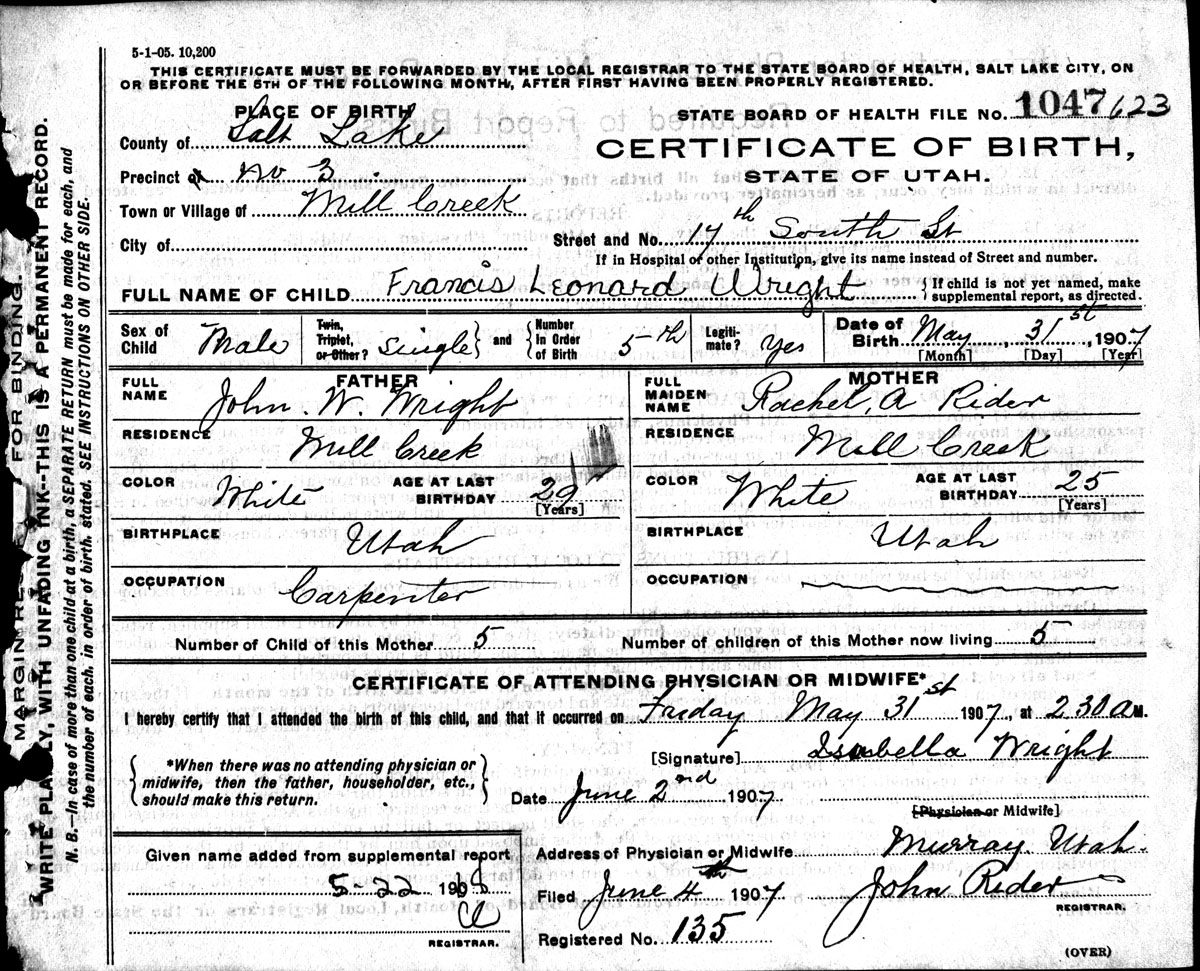 5-1-05. 10,200
THIS CERTIFICATE MUST BE FORWARDED BY THE LOCAL REGISTRAR TO THE STATE BOARD OF HEALTH, SALT LAKE CITY, ON
OR BEFORE THE 5TH OF THE FOLLOWING MONTH, AFTER FIRST HAVING BEEN PROPERLY REGISTERED.
PLACE OF BIRTH
STATE BOARD OF HEALTH FILE No. 1047 623
County of Salt Lake
CERTIFICATE OF BIRTH,
Precinct of No 3
STATE OF UTAH.
Town or Village of Mill Creek
City of
Street and No. 17th South St
If in Hospital or other Institution, give its name instead of Street and number.
FULL NAME OF CHILD Francis Leonard Wright
If child is not yet named, make
supplemental report, as directed.
Sex of Child Male
Twin, Triplet, or Other? Single and Number In Order of Birth 5th
Legiti-mate? Yes
Date of Birth May 31st, 1907
[Month] [Day] [Year]
FATHER
FULL NAME John W. Wright
RESIDENCE Mill Creek
COLOR White AGE AT LAST BIRTHDAY 29 [Years]
BIRTHPLACE Utah
OCCUPATION Carpenter
MOTHER
FULL MAIDEN NAME Rachel A Rider
RESIDENCE Mill Creek
COLOR White AGE AT LAST BIRTHDAY 25 [Years]
BIRTHPLACE Utah
OCCUPATION
Number of Child of this Mother 5 Number of children of this Mother now living 5
CERTIFICATE OF ATTENDING PHYSICIAN OR MIDWIFE*
I hereby certify that I attended the birth of this child, and that it occurred on Friday May 31st 1907, at 2 30 a M.
*When there was no attending physician or
midwife, then the father, householder, etc.,
should make this return.
[Signature] Isabella Wright
Date June 2nd 1907
[Physician or Midwife]
Given name added from supplemental report
5-22 190
REGISTRAR.
Address of Physician or Midwife Murray Utah.
Filed June 4th 1907 John Rider
REGISTRAR.
Registered No. 135
(OVER)
MARGIN RES FOR BINDING.
WRITE PLAINLY, WITH UNFADING INK--THIS IS A PERMANENT RECORD.
N. B.--In case of more than one child at a birth, a SEPARATE RETURN must be made for each, and
the number of each, in order of birth, stated. SEE INSTRUCTIONS ON OTHER SIDE.